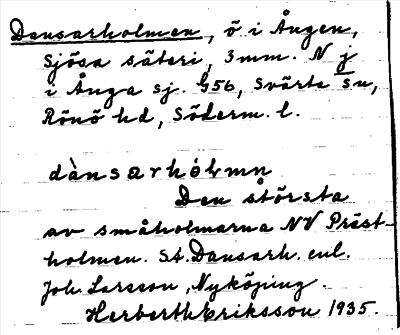 Dansarholmen, ö i Ången,
Sjösa säteri, 3 mm. N j
i Ånga sj. G56, Svärta sn,
Rönö hd, Söderm. l.
dànsarhólmn
Den största
av småholmarna NV Präst-
holmen. St. Dansarh. enl.
Joh. Larsson, Nyköping.
Herbert Eriksson 1935.